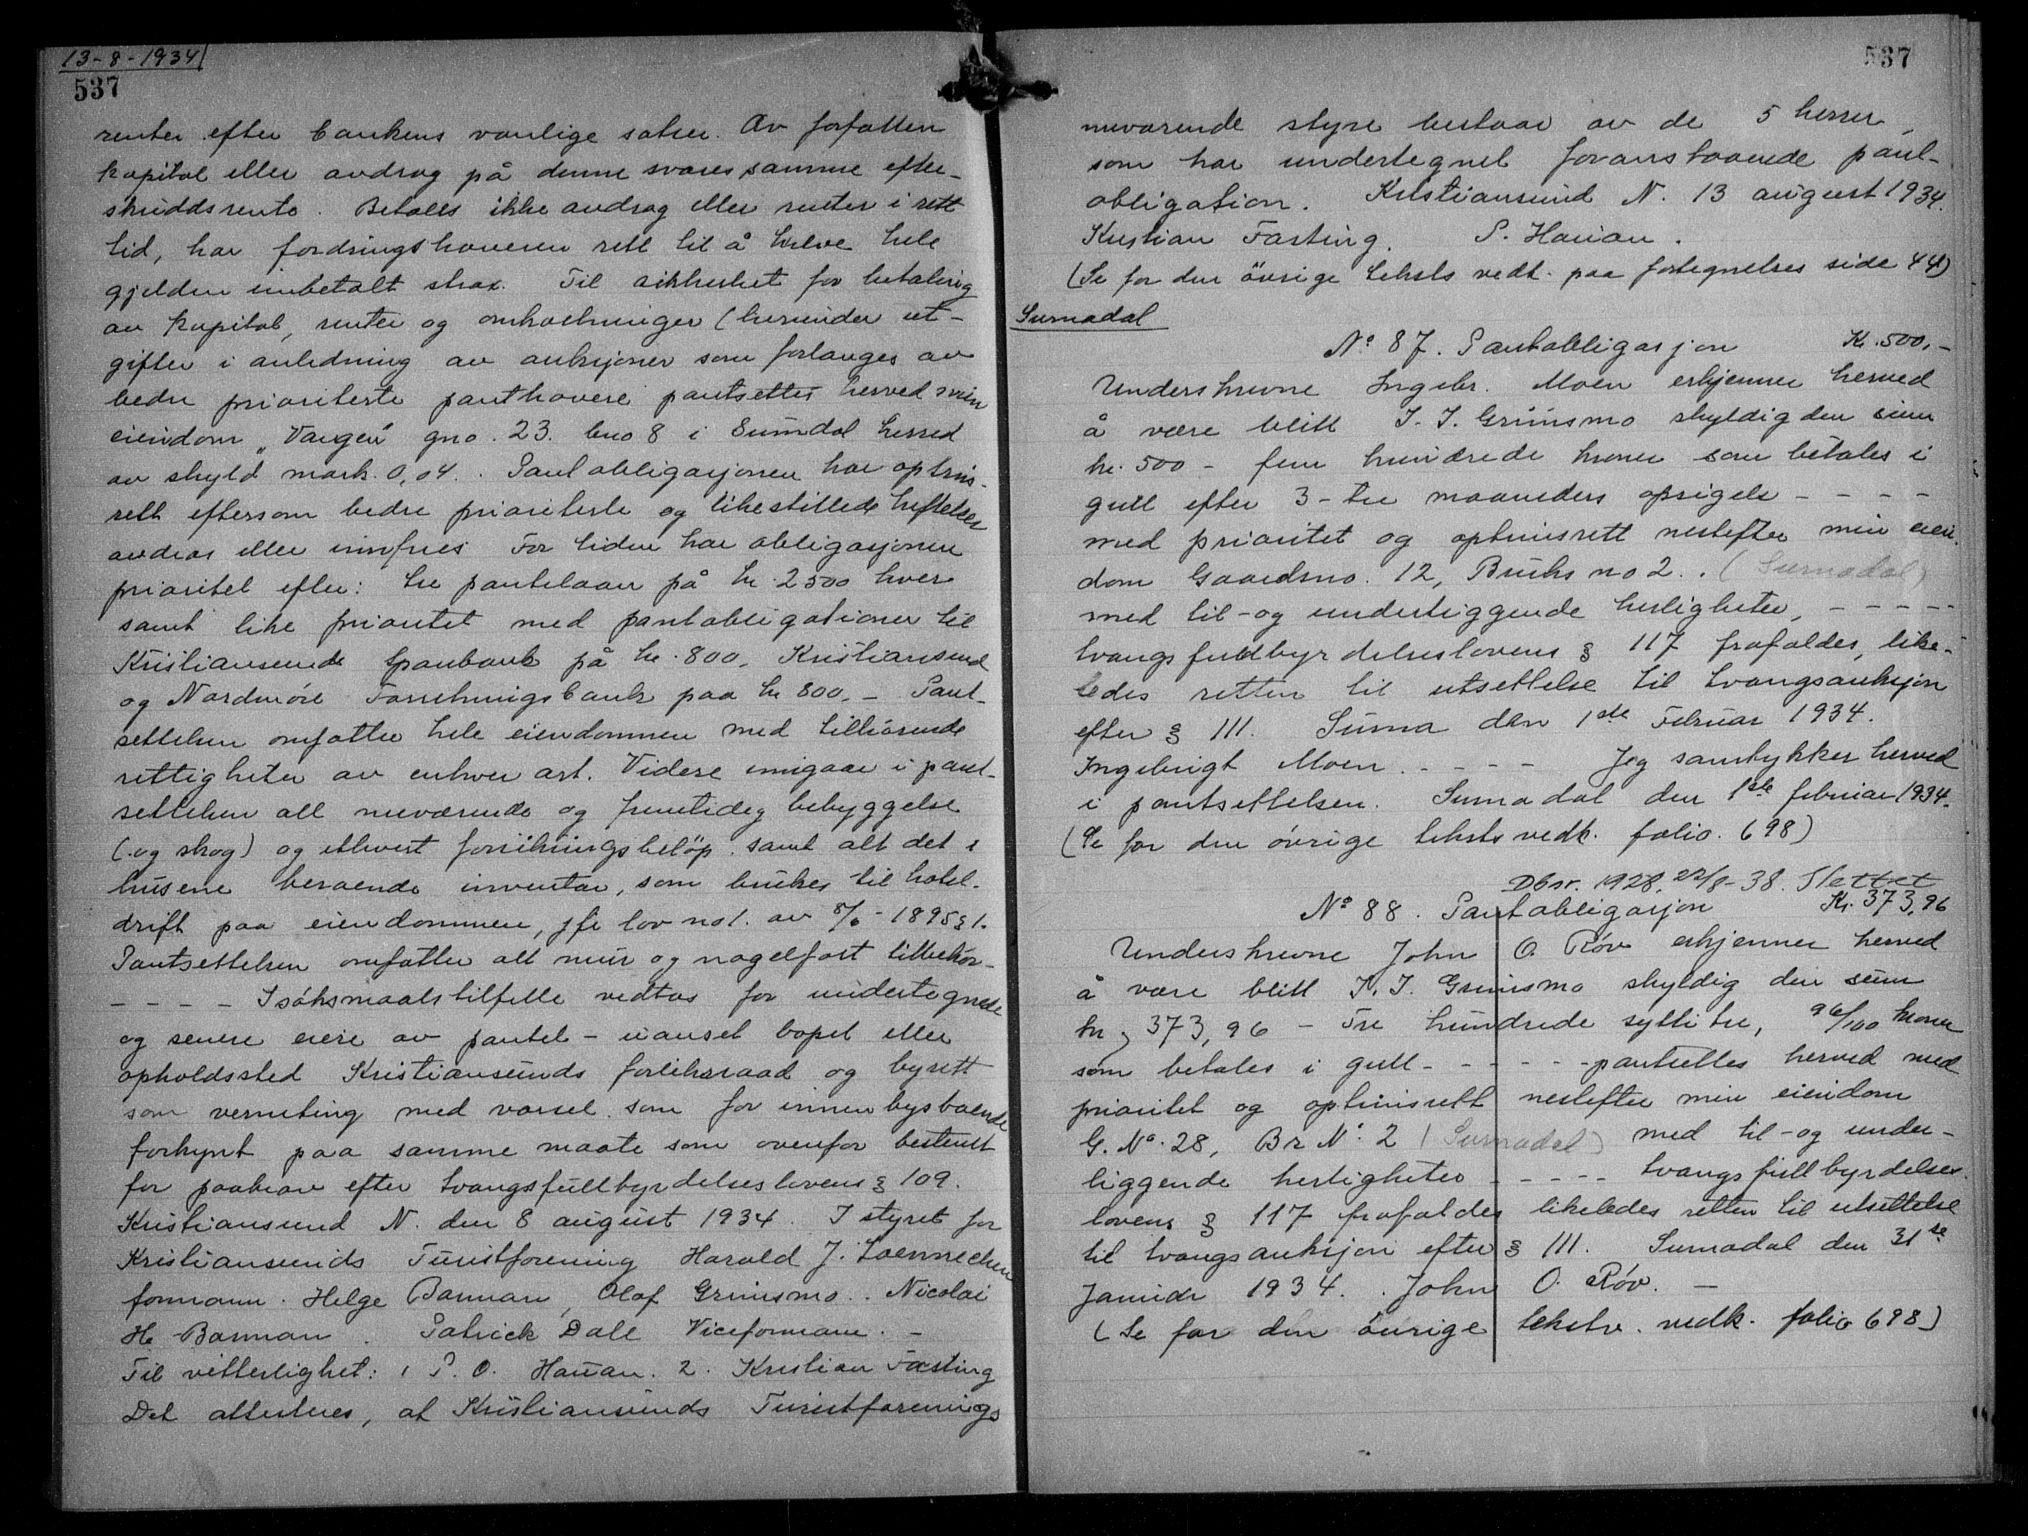 13-8-1934
537
renter efter bankens vanlige satser. Av forfatten
kapital eller avdrag på denne svares samme efter-
skuddsrente. Betales ikke avdrag eller renter i rett
tid, har fordringshaveren rett til å kreve hele
gjelden innbetalt strax. Til sikkerhet for betaling
av kapital, renter og omkostninger (herunder ut-
gifter i anledning av auksjoner som forlanges av
bedre prioriterte panthavere pantsettes herved min
eiendom "Vangen" gno. 23. bno 8 i Sunndal herred
av skyld mark. 0,04. Pantobligasjonen har optrins-
rett eftersom bedre prioriterte og likestillede heftelser
avdras eller innfries For tiden har obligasjonen
prioritet efter: tre pantelaan på kr. 2500 hver
samt like prioritet med pantobligationer til
Kristiansunds Sparebank på kr. 800,- Kristiansund
og Nordmøre Forretningsbank paa kr 800,- Pant-
settelsen omfatter hele eiendommen med tilhørende
rettigheter av enhver art. Videre inngaar i pant-
settelsen all nuværende og fremtidig bebyggelse
(og skog) og ethvert forsikringsbeløp samt alt det i
husene beroende inventar, som brukes til hotel-
drift paa eiendommen, jfr lov no 1. av 8/6-1895 § 1.
Pantsettelsen omfatter alt mur og nagelfast tilbehør-
- - - - I søksmaalstilfelle vedtas for undertegnede
og senere eiere av pantet - uanset bopel eller
opholdssted Kristiansunds forliksraad og byrett
som verneting med varsel som for innenbysboende
forkynt paa samme maate som ovenfor bestemt
for paakrav efter tvangsfullbyrdelseslovens § 109.
Kristiansund N. den 8 august 1934. I styret for
Kristiansunds Turistforening Harald J. Loennechen
formann. Helge Barman, Olaf Grimsmo.. Nicolai
H. Barman. Patrick Dall Viceformann. -
Til vitterlighet: 1 P. O. Hauan. 2. Kristian Fasting
Det attesteres, at Kristiansunds Turistforenings
537
nuværende styre bestaar av de 5 herrer,
som har undertegnet foranstaaende pant-
obligation. Kristiansund N. 13 august 1934.
Kristian Fasting. P. Hauan.
(Se for den øvrige teksts vedk. paa fortegnelses side 441)
Surnadal
No 87. Pantobligasjon Kr. 500,-
Underskrevne Ingebr. Moen erkjenner herved
å være blitt I. I. Grimsmo skyldig den sum
kr. 500 - fem hundrede kroner som betales i
gull efter 3 - tre maaneders opsigelse - - - -
med prioritet og optrinsrett nestefter min eien-
dom Gaardsno. 12, Bruks no 2.. (Surnadal)
med til- og underliggende herligheter, - - - - -
tvangsfuldbyrdelseslovens § 117 frafaldes, like-
ledes retten til utsettelse til tvangsauksjon
efter § 111. Surna den 1ste Februar 1934.
Ingebrigt Moen. - - - - Jeg samtykker herved
i pantsettelsen. Surnadal den 1ste februar 1934.
(Se for den øvrige teksts vedk. folio. 698)
Dbnr. 1928, 22/8-38. Slettet
No 88. Pantobligasjon Kr. 373,96
Underskrevne John O. Røv erkjenner herved
å være blitt I. I. Grimsmo skyldig den sum
kr 373,96 - Tre hundrede sytti tre, 96/100 kroner
som betales i gull - - - - - pantsettes herved med
prioritet og optrinsrett nestefter min eiendom
G. No. 28, Br No. 2 (Surnadal) med til- og under-
liggende herligheter - - - - - tvangsfullbyrdelses-
lovens § 117 frafaldes likeledes retten til utsettelse
til tvangsauksjon efter § 111. Surnadal den 31te
Januar 1934. John O. Røv. -
(Se for den øvrige tekstv. vedk. folio 698)